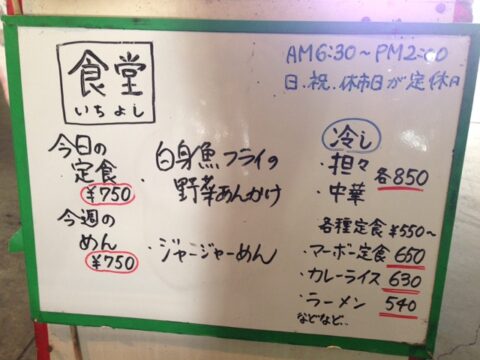 食堂
いちよし
AM6:30〜PM2:00
日、祝、休市日が定休日
今日の
定食
¥750
・白身魚フライの
野菜あんかけ
今週の
めん
¥750
・ジャージャーめん
冷し
・担々
・中華
各850
各種定食¥550〜
・マーボー定食 650
・カレーライス 630
・ラーメン 540
などなど..